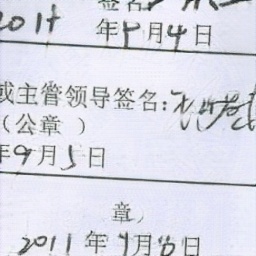 签名
2011年5月4日
或主管领导签名:
(公章 )
年9月5日
章)
2011年9月6日